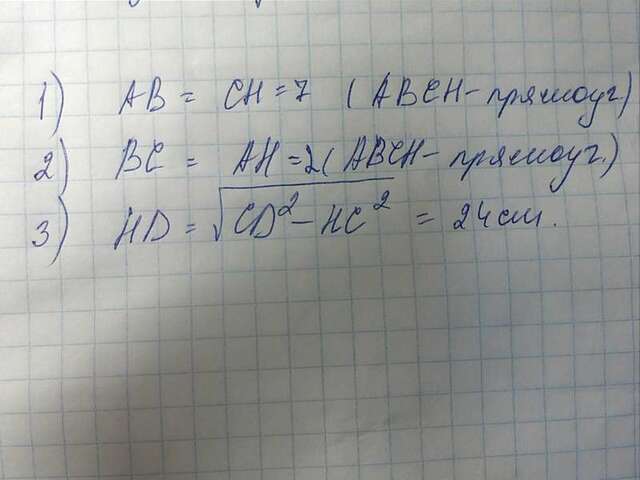 1) AB = CH = 7 (ABCH - прямоуг)
2) BC = AH = 2 (ABCH - прямоуг.)
3) HD = √CD² - HC² = 24 см.